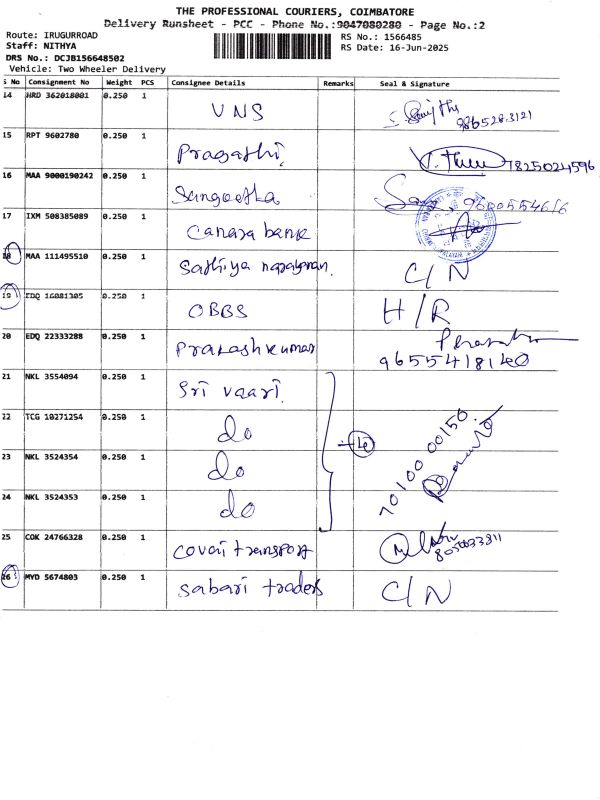 THE PROFESSIONAL COURIERS, COIMBATORE
Delivery Runsheet - PCC - Phone No.:9047080280 - Page No.:2
Route: IRUGURROAD RS No.: 1566485
Staff: NITHYA RS Date: 16-Jun-2025
DRS No.: DCJB156648502
Vehicle: Two Wheeler Delivery
S No Consignment No Weight PCS Consignee Details Remarks Seal & Signature
14 HRD 362018001 0.250 1 VNS
15 RPT 9602780 0.250 1 Pragathi 7825024596
16 MAA 9000190242 0.250 1 Sangeetha 9600554616
17 IXM 508385089 0.250 1 Canara bank
18 MAA 111495510 0.250 1 Sathiya narayanan. C/N
19 EDQ 16081305 0.250 1 OBBS H/R
20 EDQ 22333288 0.250 1 Prakashkumar 9655418140
21 NKL 3554094 0.250 1 Sri vaari.
22 TCG 10271254 0.250 1 do 70100 00150
23 NKL 3524354 0.250 1 do
24 NKL 3524353 0.250 1 do
25 COK 24766328 0.250 1 covai transport
26 MYD 5674803 0.250 1 Sabari traders C/N